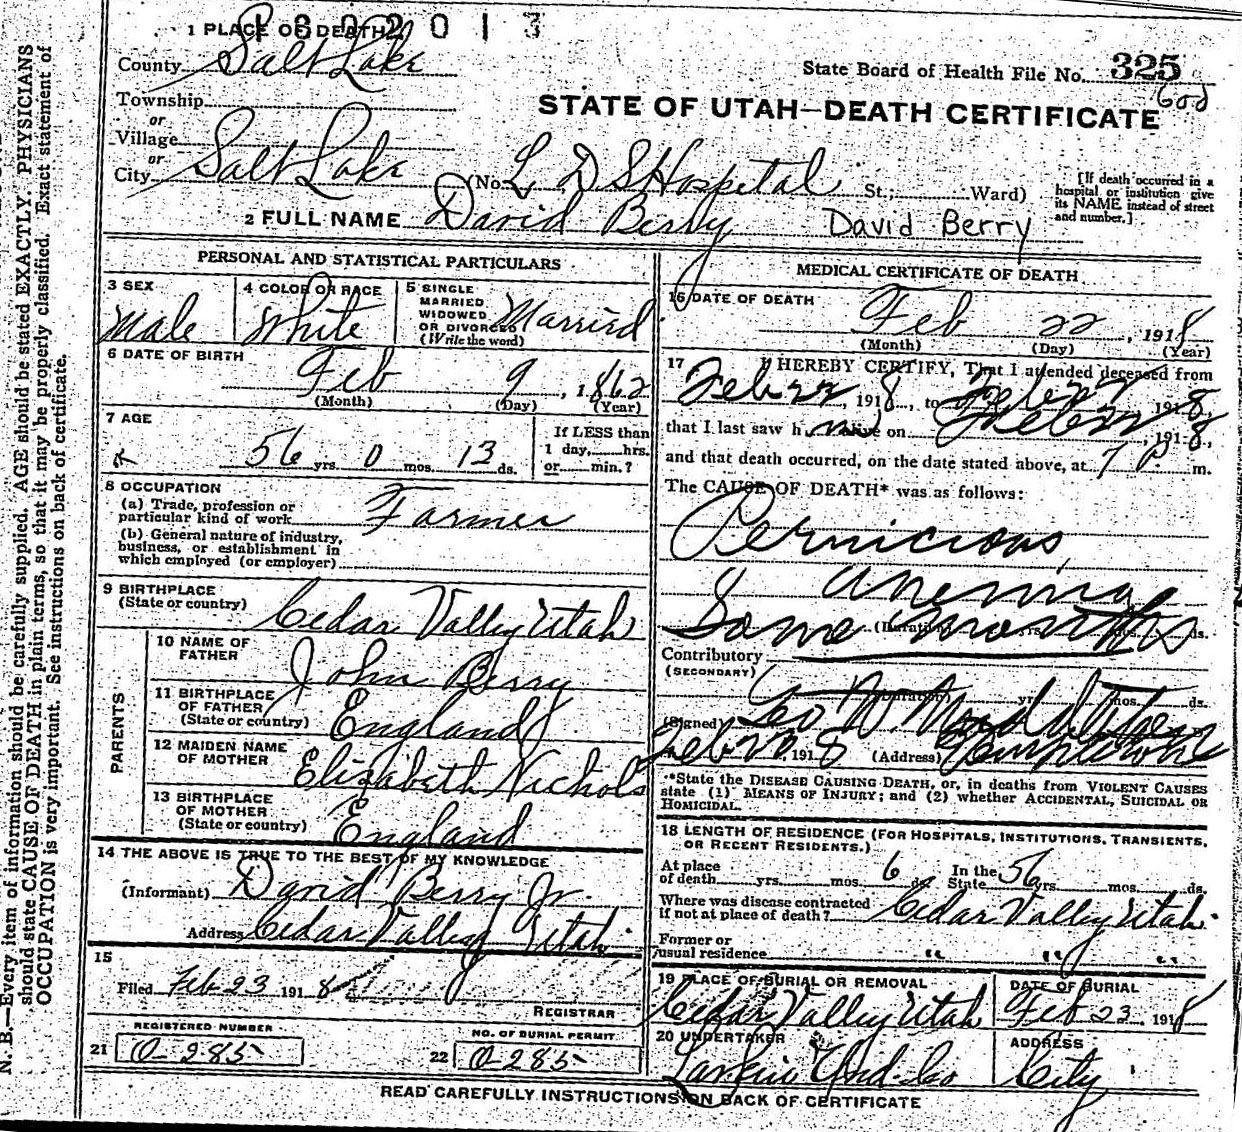 1802013
1 PLACE OF DEATH
County Salt Lake
State Board of Health File No. 325
Township
or
Village
or
City Salt Lake (No. L D S Hospital St.; Ward)
STATE OF UTAH—DEATH CERTIFICATE
[If death occurred in a hospital or institution give its NAME instead of street and number.]
2 FULL NAME David Berry David Berry
PERSONAL AND STATISTICAL PARTICULARS
3 SEX Male
4 COLOR OR RACE White
5 SINGLE MARRIED WIDOWED OR DIVORCED (Write the word) Married
6 DATE OF BIRTH
Feb 9, 1862
(Month) (Day) (Year)
7 AGE
56 yrs. 0 mos. 13 ds.
If LESS than 1 day, hrs. or min.?
8 OCCUPATION
(a) Trade, profession or particular kind of work Farmer
(b) General nature of industry, business, or establishment in which employed (or employer)
9 BIRTHPLACE (State or country) Cedar Valley Utah
PARENTS
10 NAME OF FATHER John Berry
11 BIRTHPLACE OF FATHER (State or country) England
12 MAIDEN NAME OF MOTHER Elizabeth Nichols
13 BIRTHPLACE OF MOTHER (State or country) England
14 THE ABOVE IS TRUE TO THE BEST OF MY KNOWLEDGE
(Informant) David Berry Jr.
Address Cedar Valley Utah
15
Filed Feb 23 1918
REGISTRAR
REGISTERED NUMBER
21 O-285
NO. OF BURIAL PERMIT
22 O-285
MEDICAL CERTIFICATE OF DEATH
16 DATE OF DEATH
Feb 22, 1918
(Month) (Day) (Year)
17 I HEREBY CERTIFY, That I attended deceased from
Feb 22, 1918, to Feb 22 1918,
that I last saw h alive on Feb 22, 1918,
and that death occurred, on the date stated above, at 7 P. m.
The CAUSE OF DEATH* was as follows:
Pernicious
Anemia
Some months (Duration) yrs. mos. ds.
Contributory
(SECONDARY)
(Duration) yrs. mos. ds.
(Signed) Geo W. Middleton
Feb 22, 1918 (Address) Templeton
*State the DISEASE CAUSING DEATH, or, in deaths from VIOLENT CAUSES
state (1) MEANS OF INJURY; and (2) whether ACCIDENTAL, SUICIDAL OR
HOMICIDAL.
18 LENGTH OF RESIDENCE (FOR HOSPITALS, INSTITUTIONS, TRANSIENTS,
OR RECENT RESIDENTS.)
At place of death yrs. mos. 6 ds. In the State 56 yrs. mos. ds.
Where was disease contracted if not at place of death? Cedar Valley Utah
Former or usual residence " " "
19 PLACE OF BURIAL OR REMOVAL Cedar Valley Utah
DATE OF BURIAL Feb 23 1918
20 UNDERTAKER Larkin Und. Co
ADDRESS City
READ CAREFULLY INSTRUCTIONS ON BACK OF CERTIFICATE
N. B.—Every item of information should be carefully supplied. AGE should be stated EXACTLY. PHYSICIANS
should state CAUSE OF DEATH in plain terms, so that it may be properly classified. Exact statement of
OCCUPATION is very important. See instructions on back of certificate.